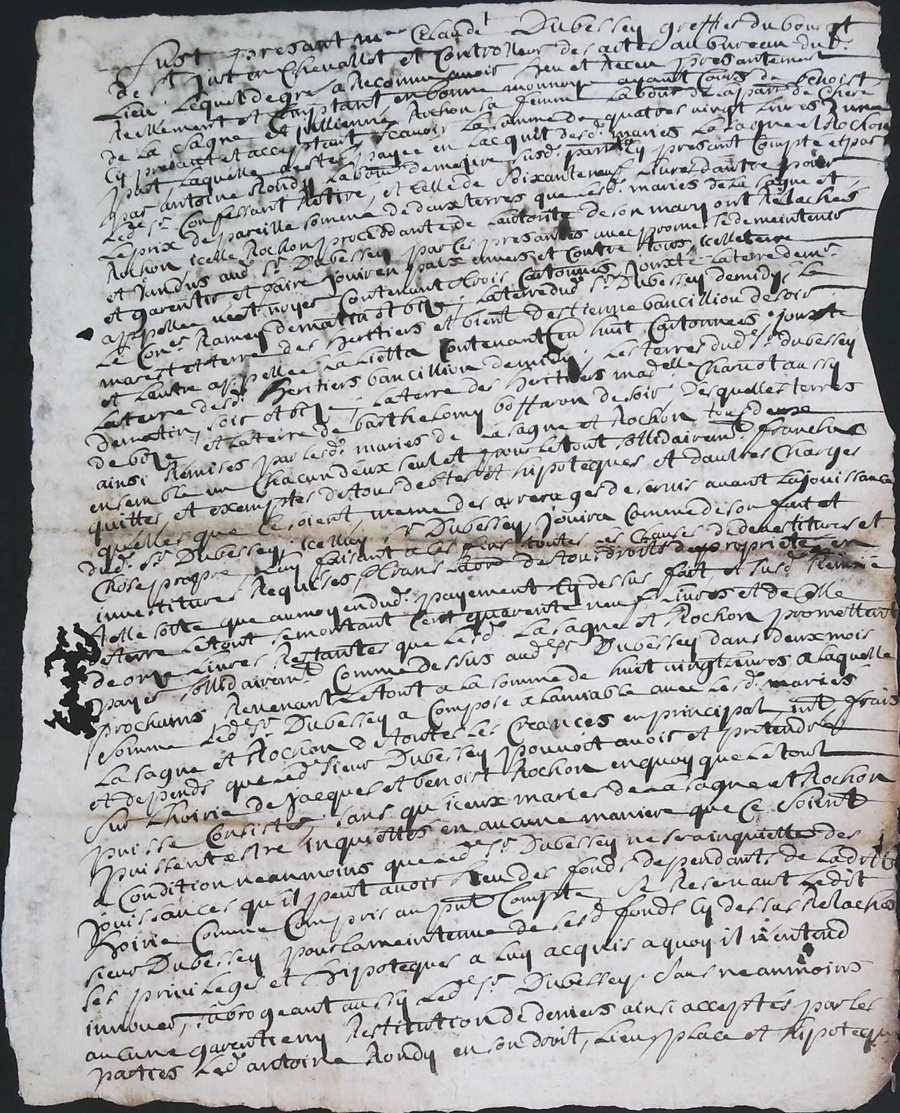 Fust presant m.re Claude Dubessey greffier du bourgt
de St Just en Chevallet et Controlleur des actes au bureau dud.
Lieu Lequel de gre a Reconnu avoir heu et Receu presantement
Reellement et Comptant en bonne monnoye ayant Cours de benoist
de la Sagne et Jullienne Rochon sa femme Laboureur de la parr. de
Cy presant et acceptant scavoir La somme de quatre vingt Livres
pour Laquelle payee en Lacquit desd. maries La Sagne et Rochon
par antoine Rondy Laboureur demeurant susd. parr. Cy presant Compte et par
Led. Sr. Confessant Retire, et Celle de Soixante neuf Livres dautre pour
Le prix de pareille somme de deux terres que Lesd. maries de La Sagne et
Rochon icelle Rochon proceddante de Lautorite de son mary ont Relaches
et Vandus aud. Sr. Dubessey par Ces presantes avec promesse de maintenir
et garentir et faire Jouir en paix envers et Contre tous, icelle terre
appellee contenant trois Cartonnes Jouxte La terre dem.r
Le Con.er Ramey de matin et bize, La terre dud. Sr. Dubessey de midy, Le
et terre des heritiers et bient destienne bancillion de soir
et Lautre appellee La Liotta Contenant huit Cartonnees Jouxte
La terre desd. heritiers bancillion de midy, Les terres dud. Sr. Dubessey
de matin, soir et bize, La terre des heritiers madelle Chariot aussy
de bize, et La terre de barthelemy boffaron de soir Desquelles terres
ainsi Remises par Lesd. maries de La Sagne et Rochon tous deux
ensemble un Chacun deux seul et pour Le tout sollidairement franches
quittes et exemptes de tous debtes et hipoteques et dautres Charges
quelles que Ce soient meme des arrerages de servis avant La Jouissance
dud. Sr. Dubessey, icelluy Sr. Dubessey Jouira Comme de son fait et
Chose propre Luy faisant a Ces fins toutes Les Clauses de devestitures et
investitures Requises de tous droits de proprietes en
telle sorte que au moyen dud. payement Cy dessus fait et susd. Remise
de terre Le tout se montant Cent quarente neuf Livres et de Celle
de onze Livres Restantes que Lesd. La Sagne et Rochon promettent
payer sollidairem.t Comme dessus aud. Sr. Dubessey dans deux mois
prochains Revenant Le tout a La somme de huit vingt Livres a Laquelle
somme Led. Sr. Dubessey a Compose a Lamiable avec Lesd. maries
La Sagne et Rochon de toutes Les Creances en principal int. frais
et depends que Led. sieur Dubessey pouvoit avoir et pretendre
sur Lhoirie de Jacques et benoist Rochon en quoy que Le tout
puisse Consister, sans qu iceux maries de La Sagne et Rochon
puissent estre inquiettes en aucune maniere que Ce soient
a Condition neanmoins que Led. Sr. Dubessey ne sera inquiette des
Jouissances qu il peut avoir heu des fonds dependants de Lad.
hoirie Comme Compris au pnt Compte, Se Reservant Ledit
sieur Dubessey pour La maintenue desd. fonds Cy dessus Relaches
ses privileges et hipoteques a Luy acquis a quoy il n entend
innover, Subrogeant aussy Led. Sr. Dubessey, sans neanmoins
aucune garentie ny Restitution de deniers ainsi acceptes par Les
parties Led. antoine Rondy en son droit, Lieu, place et hipoteque